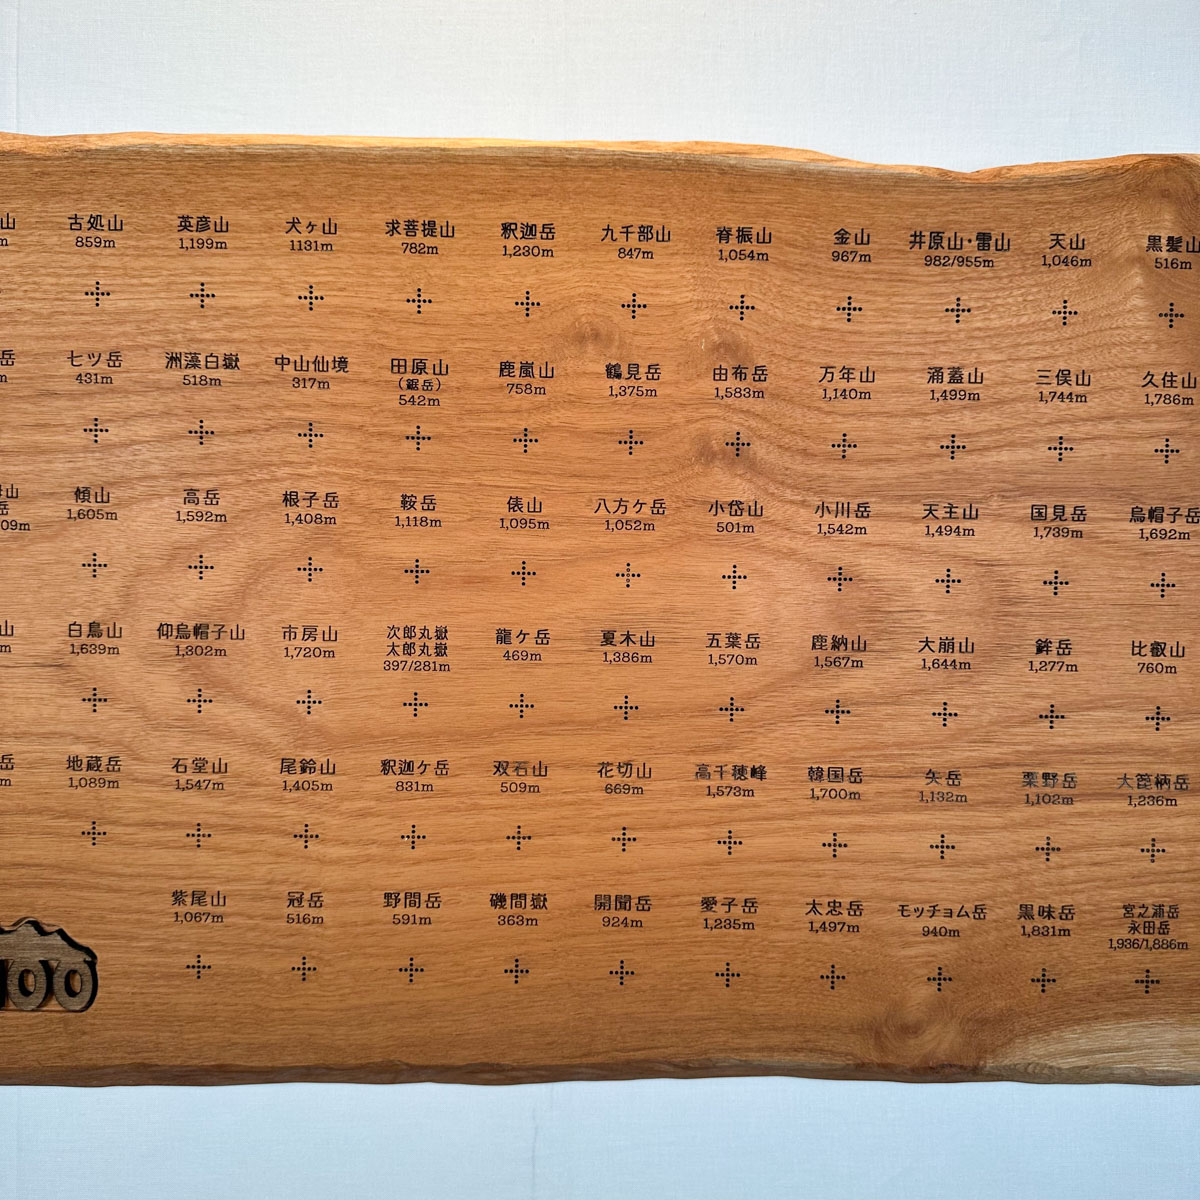 山 古処山 英彦山 犬ヶ山 求菩提山 釈迦岳 九千部山 脊振山 金山 井原山・雷山 天山 黒髪山
m 859m 1,199m 1131m 782m 1,230m 847m 1,054m 967m 982/955m 1,046m 516m
岳 七ツ岳 洲藻白嶽 中山仙境 田原山 鹿嵐山 鶴見岳 由布岳 万年山 涌蓋山 三俣山 久住山
(鋸岳)
m 431m 518m 317m 542m 758m 1,375m 1,583m 1,140m 1,499m 1,744m 1,786m
山 傾山 高岳 根子岳 鞍岳 俵山 八方ケ岳 小岱山 小川岳 天主山 国見岳 烏帽子岳
岳
09m 1,605m 1,592m 1,408m 1,118m 1,095m 1,052m 501m 1,542m 1,494m 1,739m 1,692m
山 白鳥山 仰烏帽子山 市房山 次郎丸嶽 龍ケ岳 夏木山 五葉岳 鹿納山 大崩山 鉾岳 比叡山
太郎丸嶽
m 1,639m 1,302m 1,720m 397/281m 469m 1,386m 1,570m 1,567m 1,644m 1,277m 760m
岳 地蔵岳 石堂山 尾鈴山 釈迦ケ岳 双石山 花切山 高千穂峰 韓国岳 矢岳 栗野岳 大箆柄岳
m 1,089m 1,547m 1,405m 831m 509m 669m 1,573m 1,700m 1,132m 1,102m 1,236m
紫尾山 冠岳 野間岳 磯間嶽 開聞岳 愛子岳 太忠岳 モッチョム岳 黒味岳 宮之浦岳
永田岳
1,067m 516m 591m 363m 924m 1,235m 1,497m 940m 1,831m 1,936/1,886m